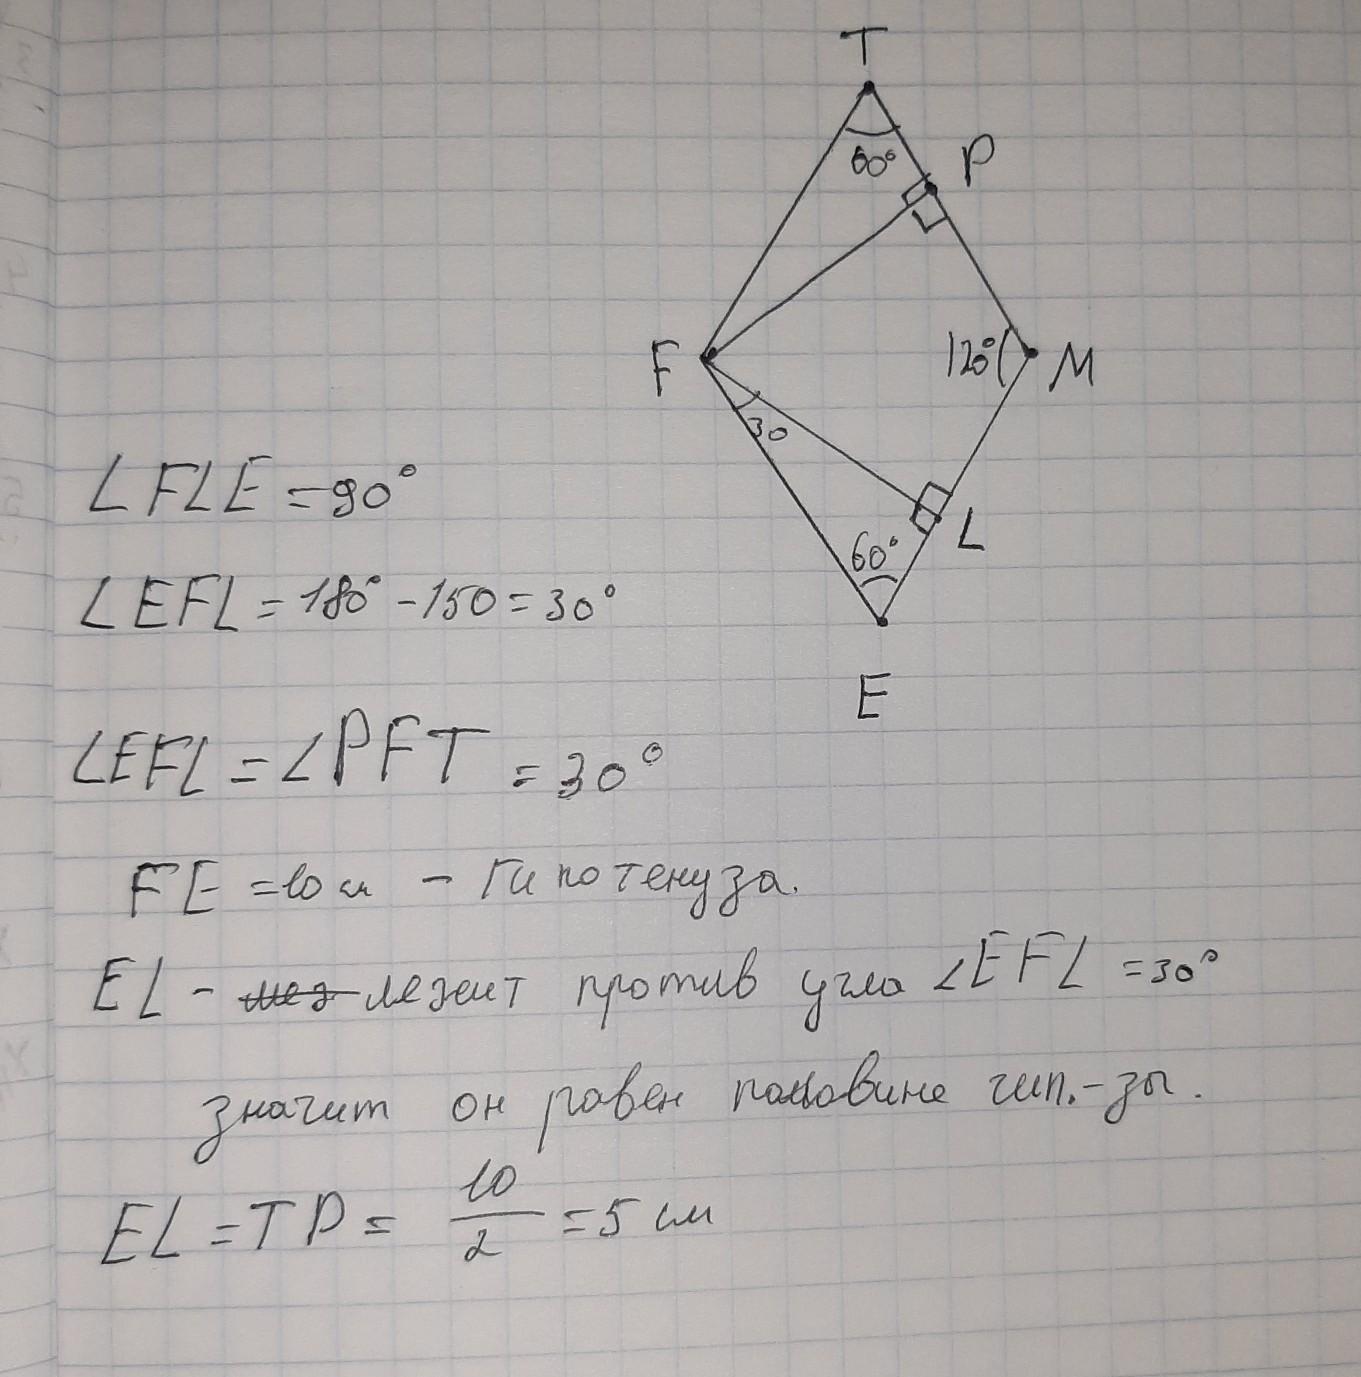 T
60°
P
F
120°
M
30
∠FLE = 90°
L
60°
∠EFL = 180° - 150 = 30°
E
∠EFL = ∠PFT = 30°
FE = 10 см - Гипотенуза.
EL - лежит против угла ∠EFL = 30°
значит он равен половине гип.-зы.
EL = TP = 10/2 = 5 см